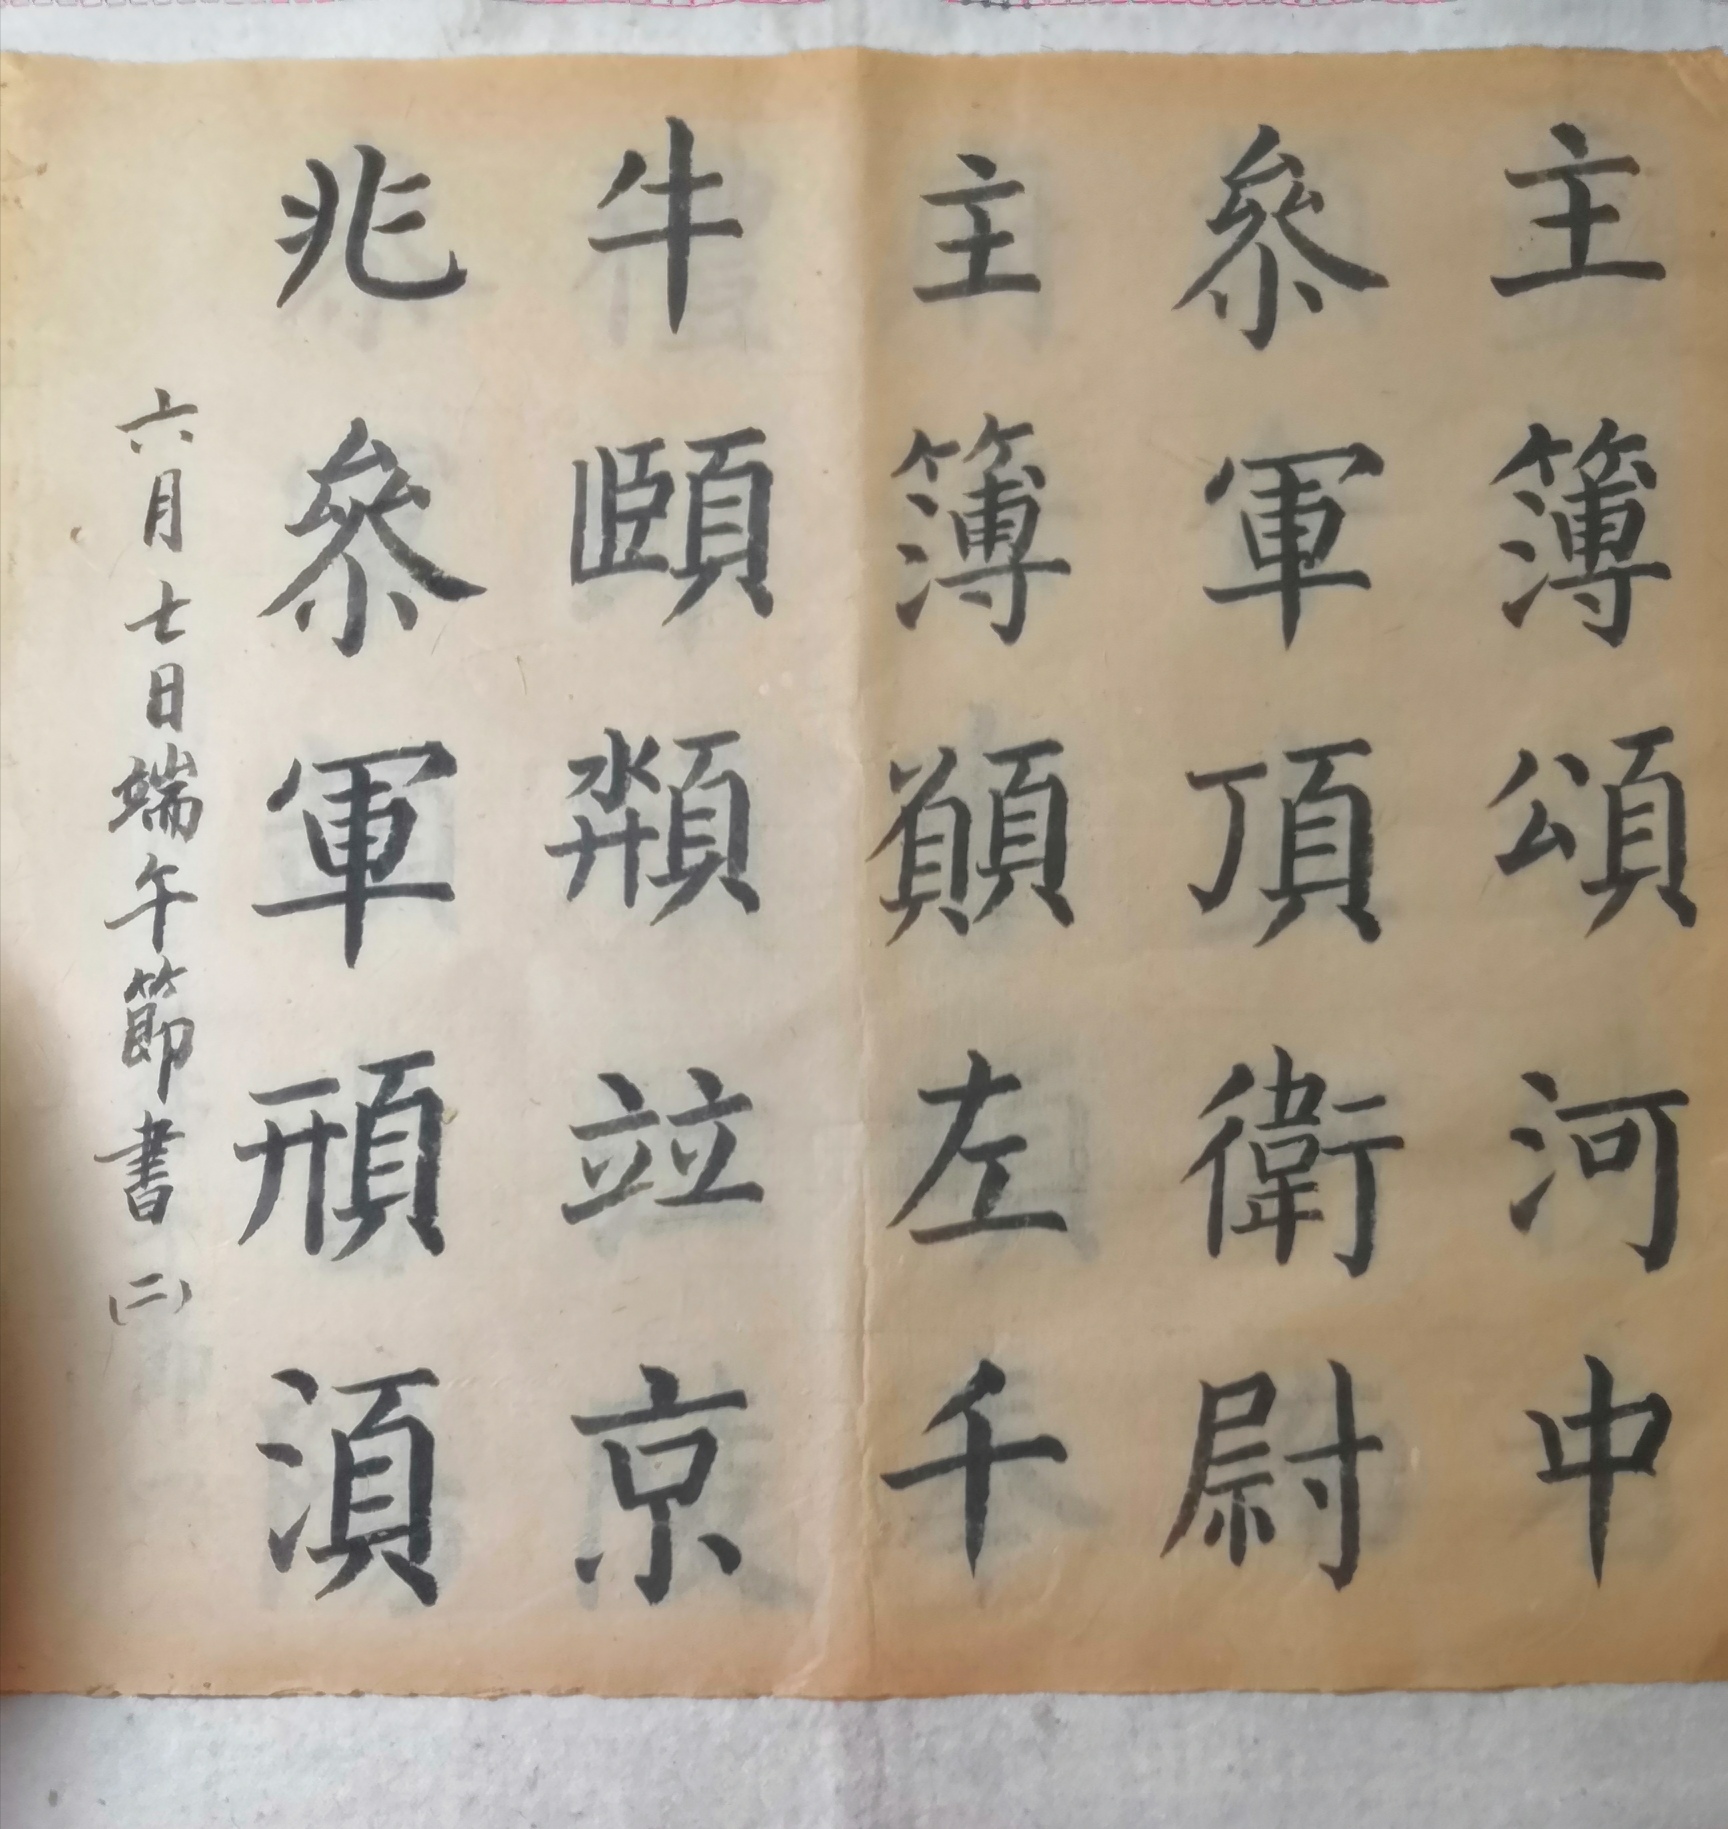 主簿頌河中
叅軍頂衛尉
主簿願左千
牛頤頮竝京
兆叅軍湏
六月七日端午節書(二)